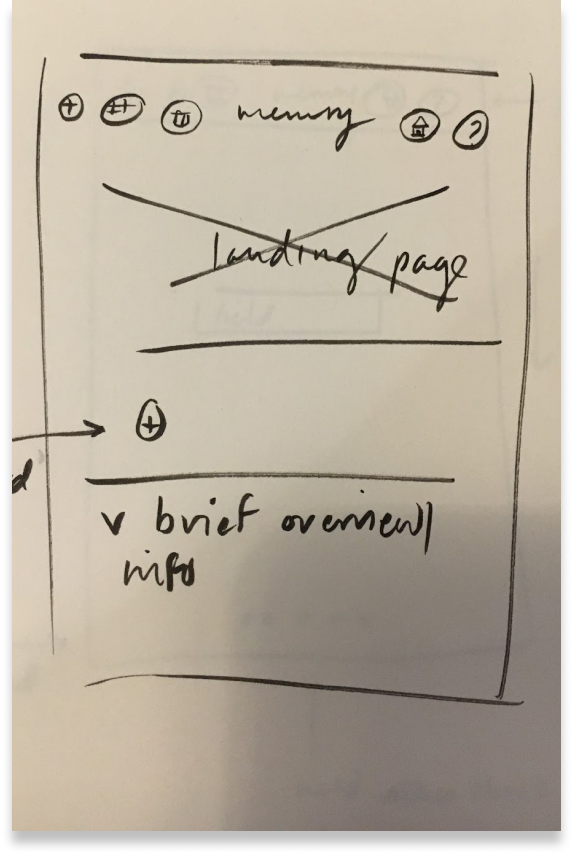 + ++ memory ?
landing page
+
d
v brief overview/
info